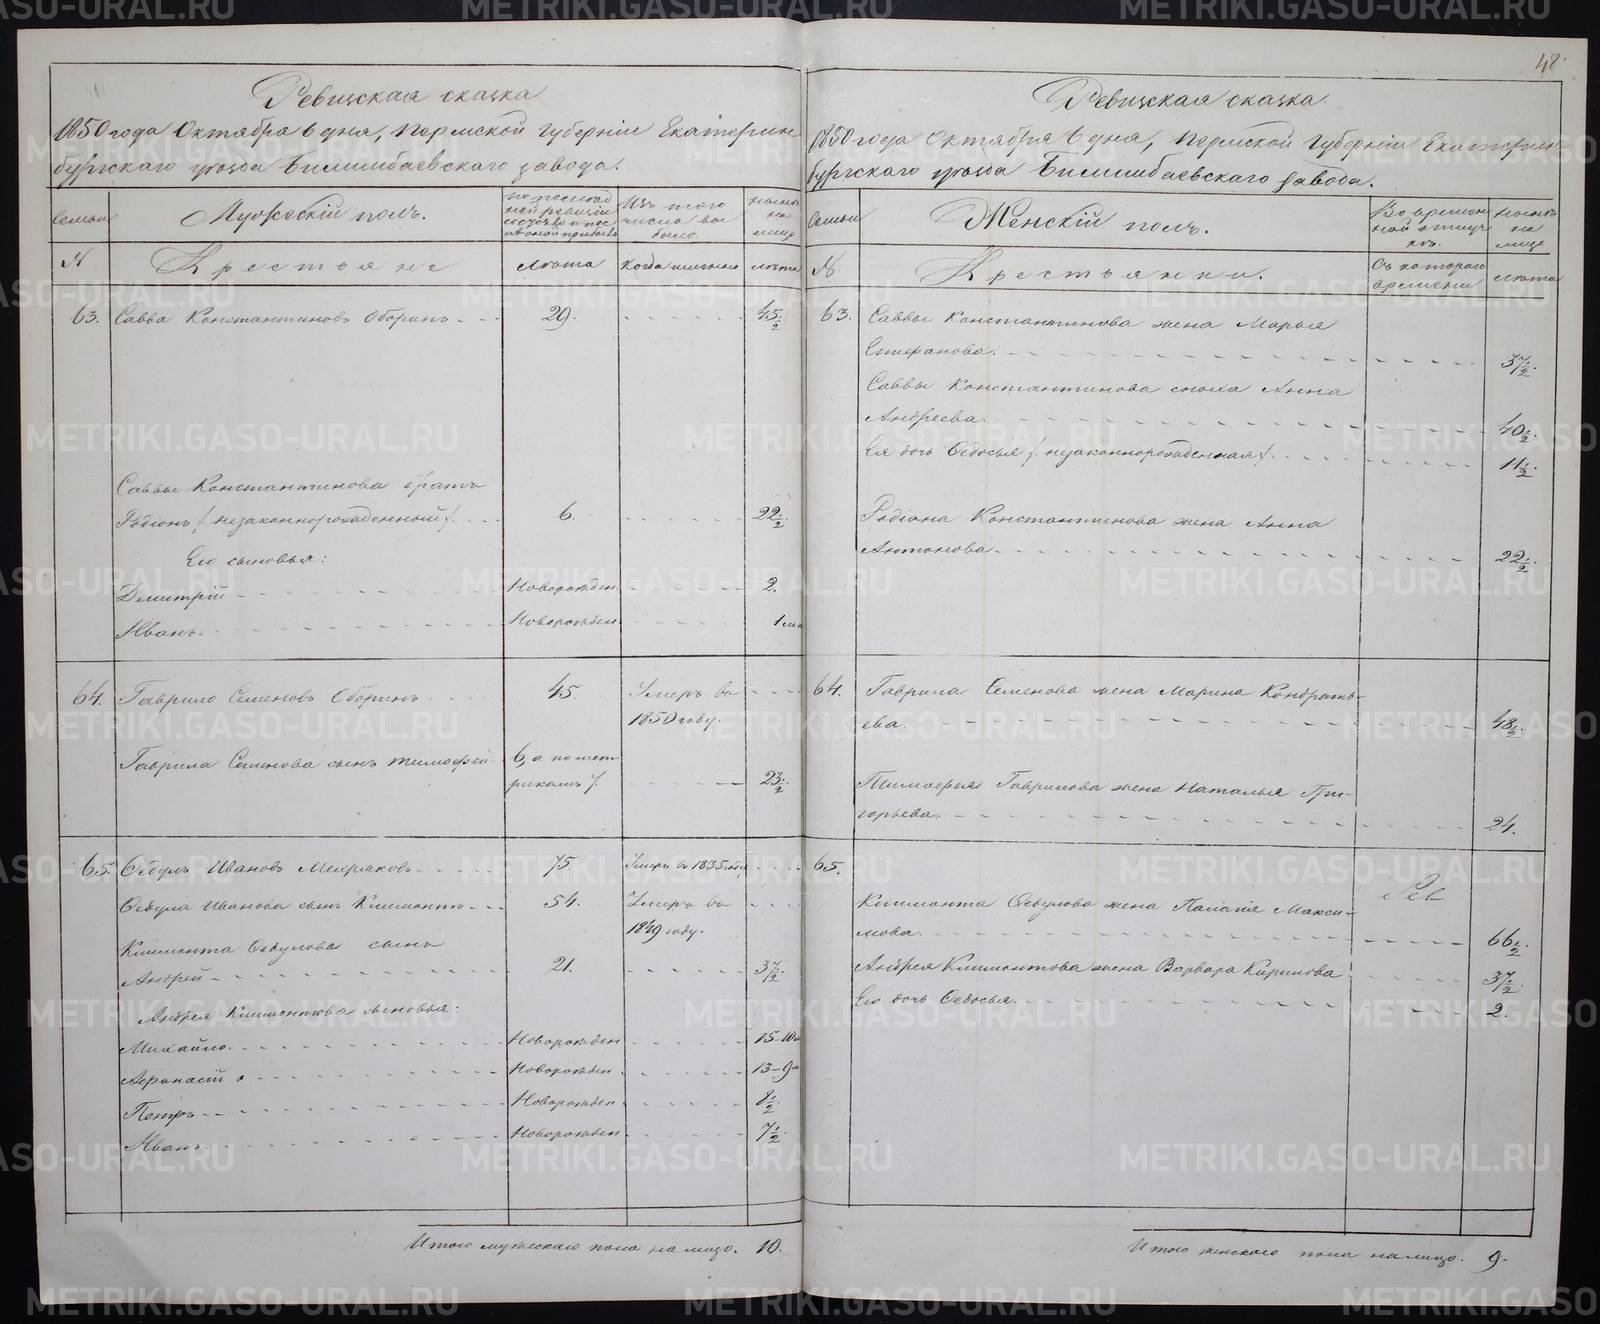 48
Ревизская сказка
1850 года Октября 6 дня, Пермской Губернiи Екатерин
бургскаго уѣзда Билимбаевскаго завода.
Семьи
Мужескiй полъ.
по послѣд
ней ревизiи
состояло и пос
лѣ оной прибыло
Изъ того
числа вы
было.
нынѣ
на
лицо
№
Крестьяне
лѣта
когда именно
лѣта
63. Савва Константиновъ Оборинъ 29. 45 1/2
Саввы Константинова братъ
Родiонъ /незаконнорожденный/. 6. 22 1/2
Его сыновья:
Дмитрiй Новорожден 2.
Иванъ. Новорожден. 1 мѣс
64. Гаврило Семеновъ Оборинъ 45. Умеръ въ
1850 году.
Гаврила Семенова сынъ Тимофей 6, а по мет
рикамъ 7. 23 1/2
65. Ѳедулъ Ивановъ 75. Умеръ въ 1835 году
Ѳедула Иванова сынъ Климонтъ 54. Умеръ въ
1849 году.
Климонта Ѳедулова сынъ
Андрей 21. 37 1/2
Андрея Климонтова сыновья:
Михайло. Новорожден 15-10 м
Афанасiй Новорожден 13-9 м
Петръ Новорожден 8 1/2
Иванъ. Новорожден 7 1/2
Итого мужескаго пола на лицо. 10.
Ревизская сказка.
1850 года Октября 6 дня, Пермской Губернiи Екатерин
бургскаго уѣзда Билимбаевскаго завода.
Семьи
Женскiй полъ.
Во времен
ной отлуч
кѣ.
нынѣ
на
лицо
№
Крестьянки.
Съ котораго
времени
лѣта
63. Саввы Константинова жена Марья
Степанова. 37 1/2.
Саввы Константинова сноха Анна
Андреева. 40 1/2.
Ея дочь Ѳедосья /незаконнорожденная/. 11 1/2
Родiона Константинова жена Анна
Антонова 22 1/2.
64. Гаврила Семенова жена Марина Кондрать-
ева. 48 1/2.
Тимофея Гаврилова жена Наталья Гри-
горьева. 24.
65.
Рев
Климонта Ѳедулова жена Палагiя Макси-
мова. 66 1/2.
Андрея Климонтова жена Варвара Кирилова 37 1/2.
Его дочь Ѳедосья. 2.
Итого женскаго пола на лицо. 9.
METRIKI.GASO-URAL.RU